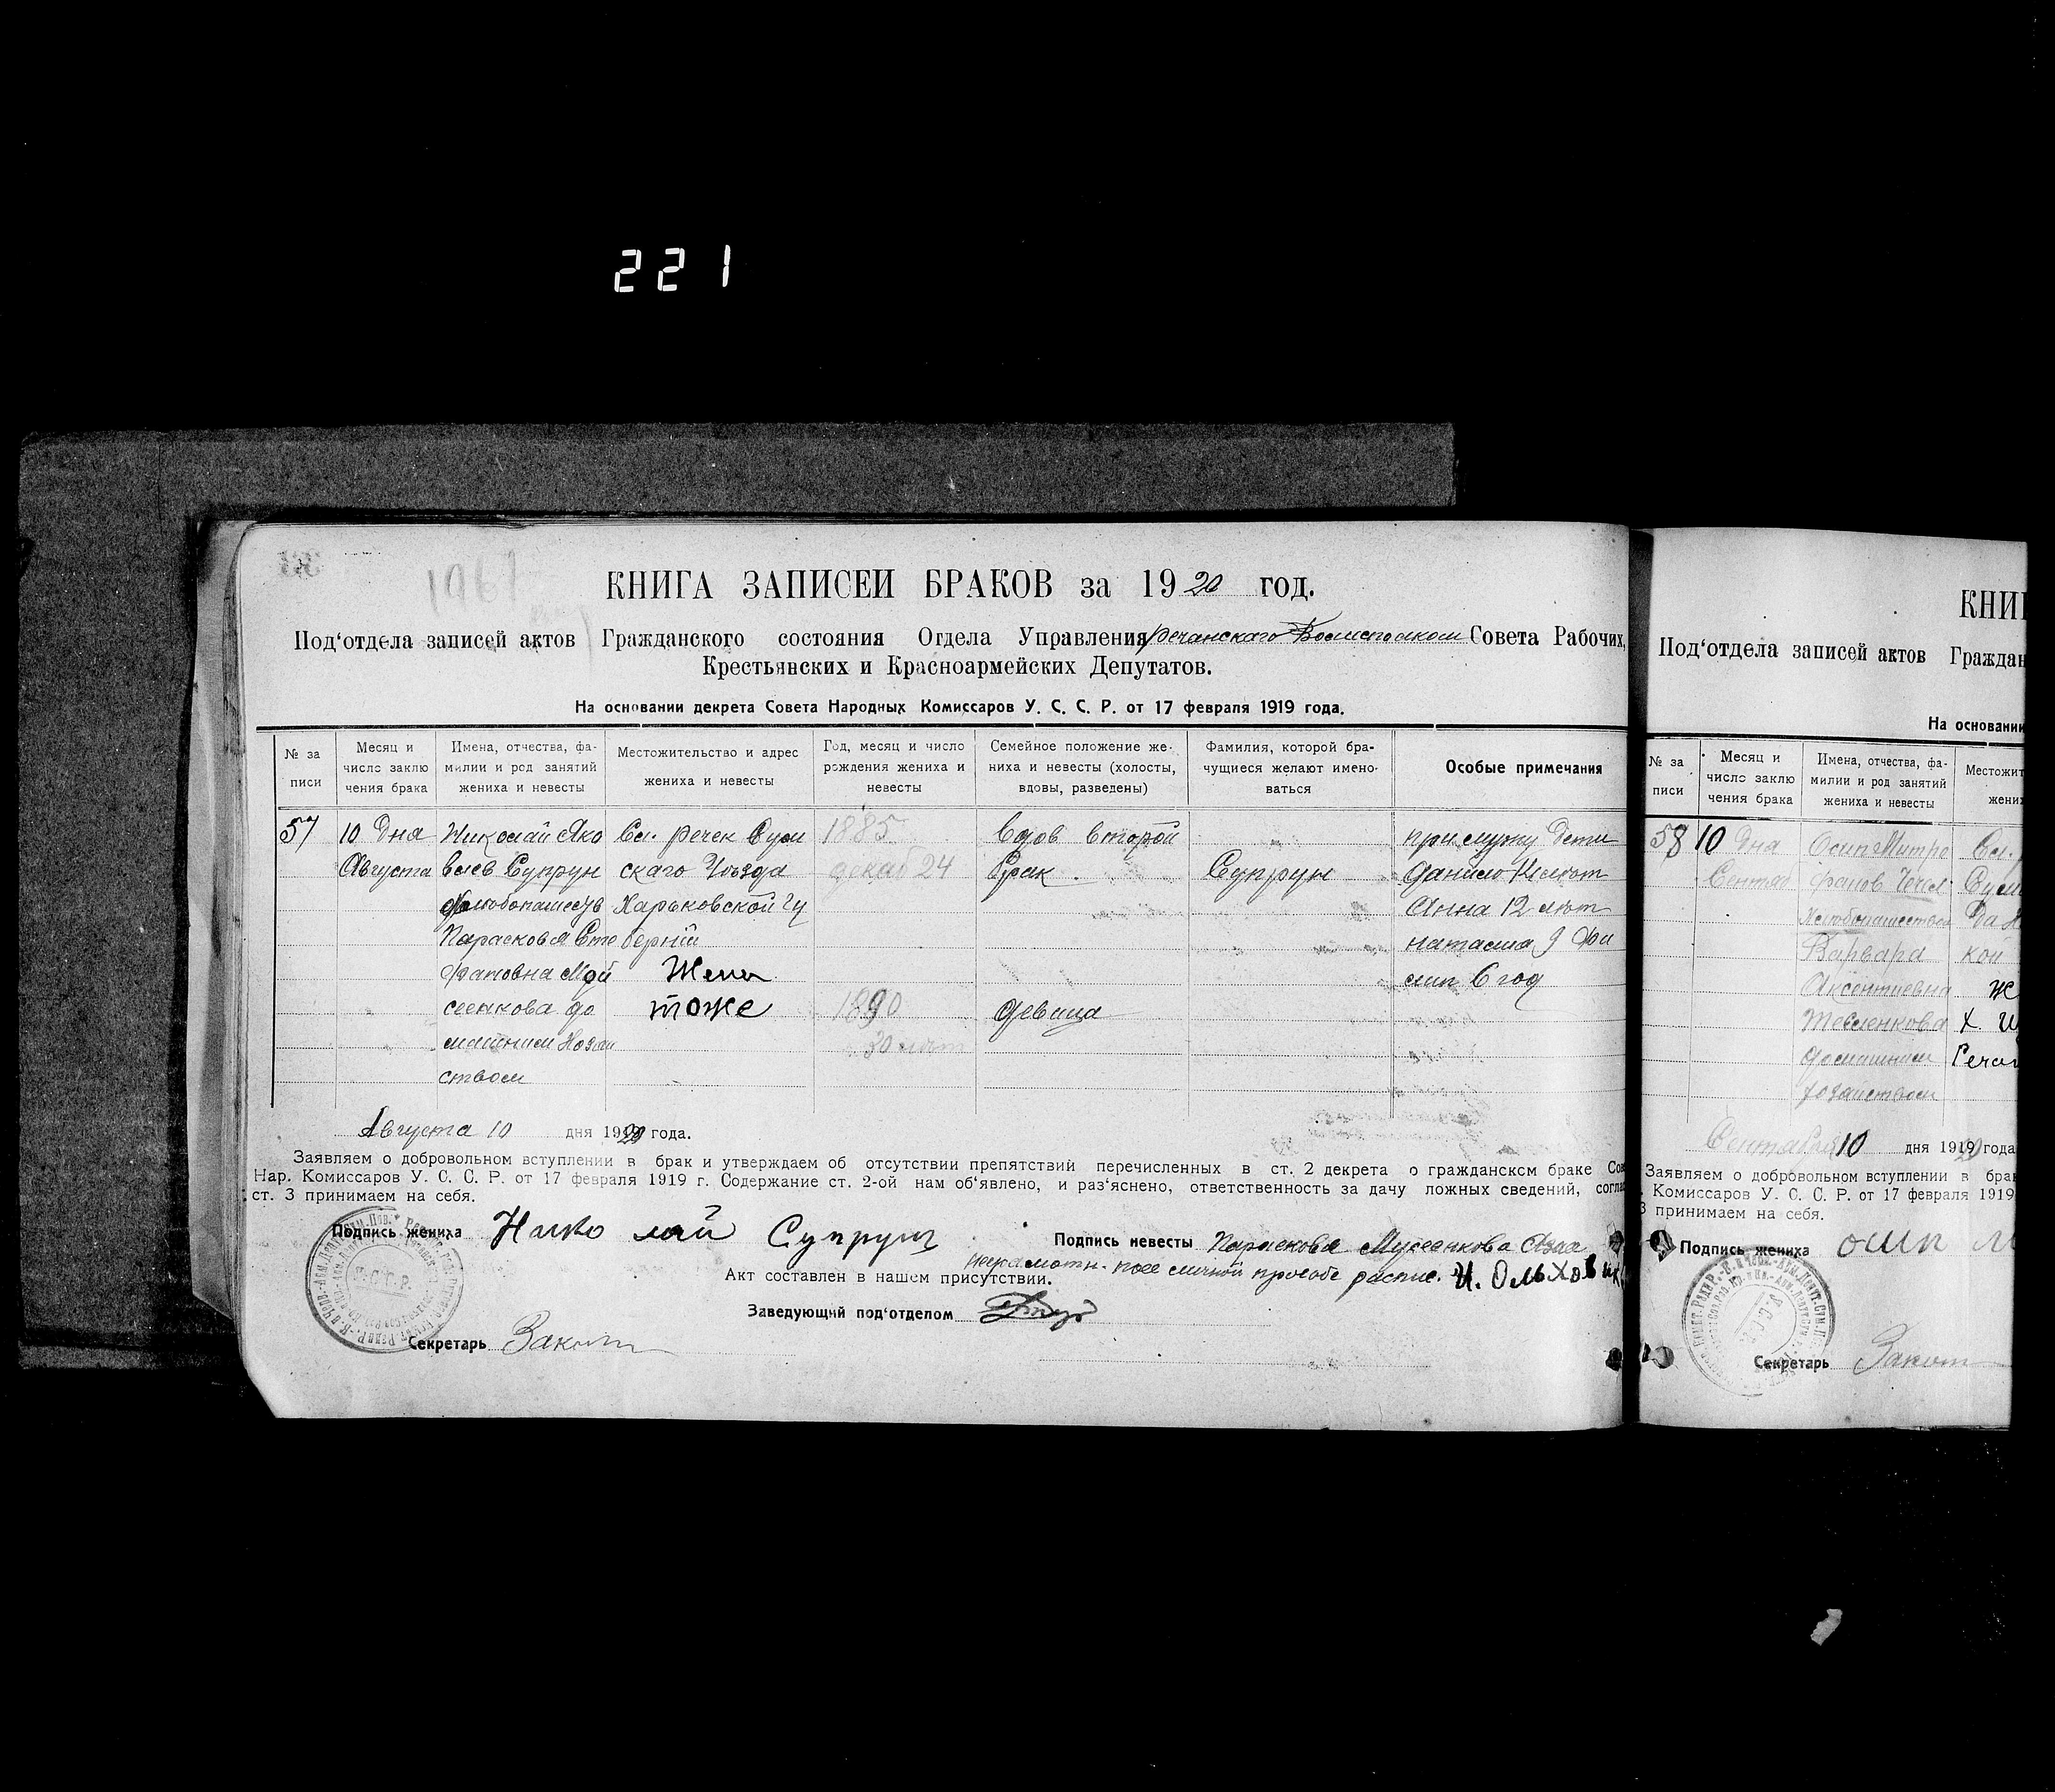 221
1967
КНИГА ЗАПИСЕЙ БРАКОВ за 1920 год.
Под‘отдела записей актов Гражданского состояния Отдела Управления Речанскаго Волисполком Совета Рабочих,
Крестьянских и Красноармейских Депутатов.
На основании декрета Совета Народных Комиссаров У. С. С. Р. от 17 февраля 1919 года.
№ за писи
Месяц и число заклю чения брака
Имена, отчества, фа- милии и род занятий жениха и невесты
Местожительство и адрес жениха и невесты
Год, месяц и число рождения жениха и невесты
Семейное положение же- ниха и невесты (холосты, вдовы, разведены)
Фамилия, которой бра- чущиеся желают имено- ваться
Особые примечания
57 10 Дня Николай Яко Сл. Речек Сум 1885 Вдов второй при мужу дети
Августа влев Супрун скаго Уъзда декаб 24 брак. Супрун Данило лът
Хлъбопашеств Харьковской Гу Анна 12 лът
Парасковя Сте берніи наташа 9 Фи
фановна Мой Жены лип 6 год
сеенкова до тоже 1890 девица
машним Хозяи 30 лът
ством
Августа 10 дня 1920 года.
Заявляем о добровольном вступлении в брак и утверждаем об отсутствии препятствий перечисленных в ст. 2 декрета о гражданском браке Сов
Нар. Комиссаров У. С. С. Р. от 17 февраля 1919 г. Содержание ст. 2-ой нам об‘явлено, и раз‘яснено, ответственность за дачу ложных сведений, соглас
ст. 3 принимаем на себя.
Подпись жениха Николай Супрун Подпись невесты Парасковя Мусеенкова
неграмотн. по ее личной прозбе распис. И. Ольховик
Акт составлен в нашем присутствии.
Заведующий под‘отделом
Секретарь Закот
КНИ
Под‘отдела записей актов Граждан
На основании
№ за писи
Месяц и число заклю чения брака
Имена, отчества, фа- милии и род занятий жениха и невесты
Местожит жених
58 10 Дня Осип Митро Сл.
Сентяб фанов Сум
Хлъбопашеством
Варвара кой
Аксентиевна Ж
Тевленкова
домашним Речан
хозаиством
Сентября 10 дня 1920 года
Заявляем о добровольном вступлении в брак
. Комиссаров У. С. С. Р. от 17 февраля 1919
3 принимаем на себя.
Подпись жениха осип
Секретарь Закот